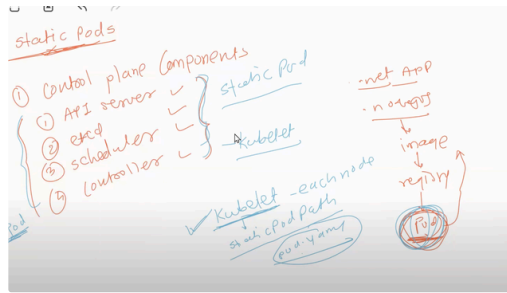 static Pods
① Control plane Components
① API server ✓
② etcd ✓
③ scheduler ✓
④ Controller ✓
static Pod
- Kubelet
✓ Kubelet - each node
staticPodPath
pod.yaml
Pod
.net App
. nodejs
image
registry
Pod